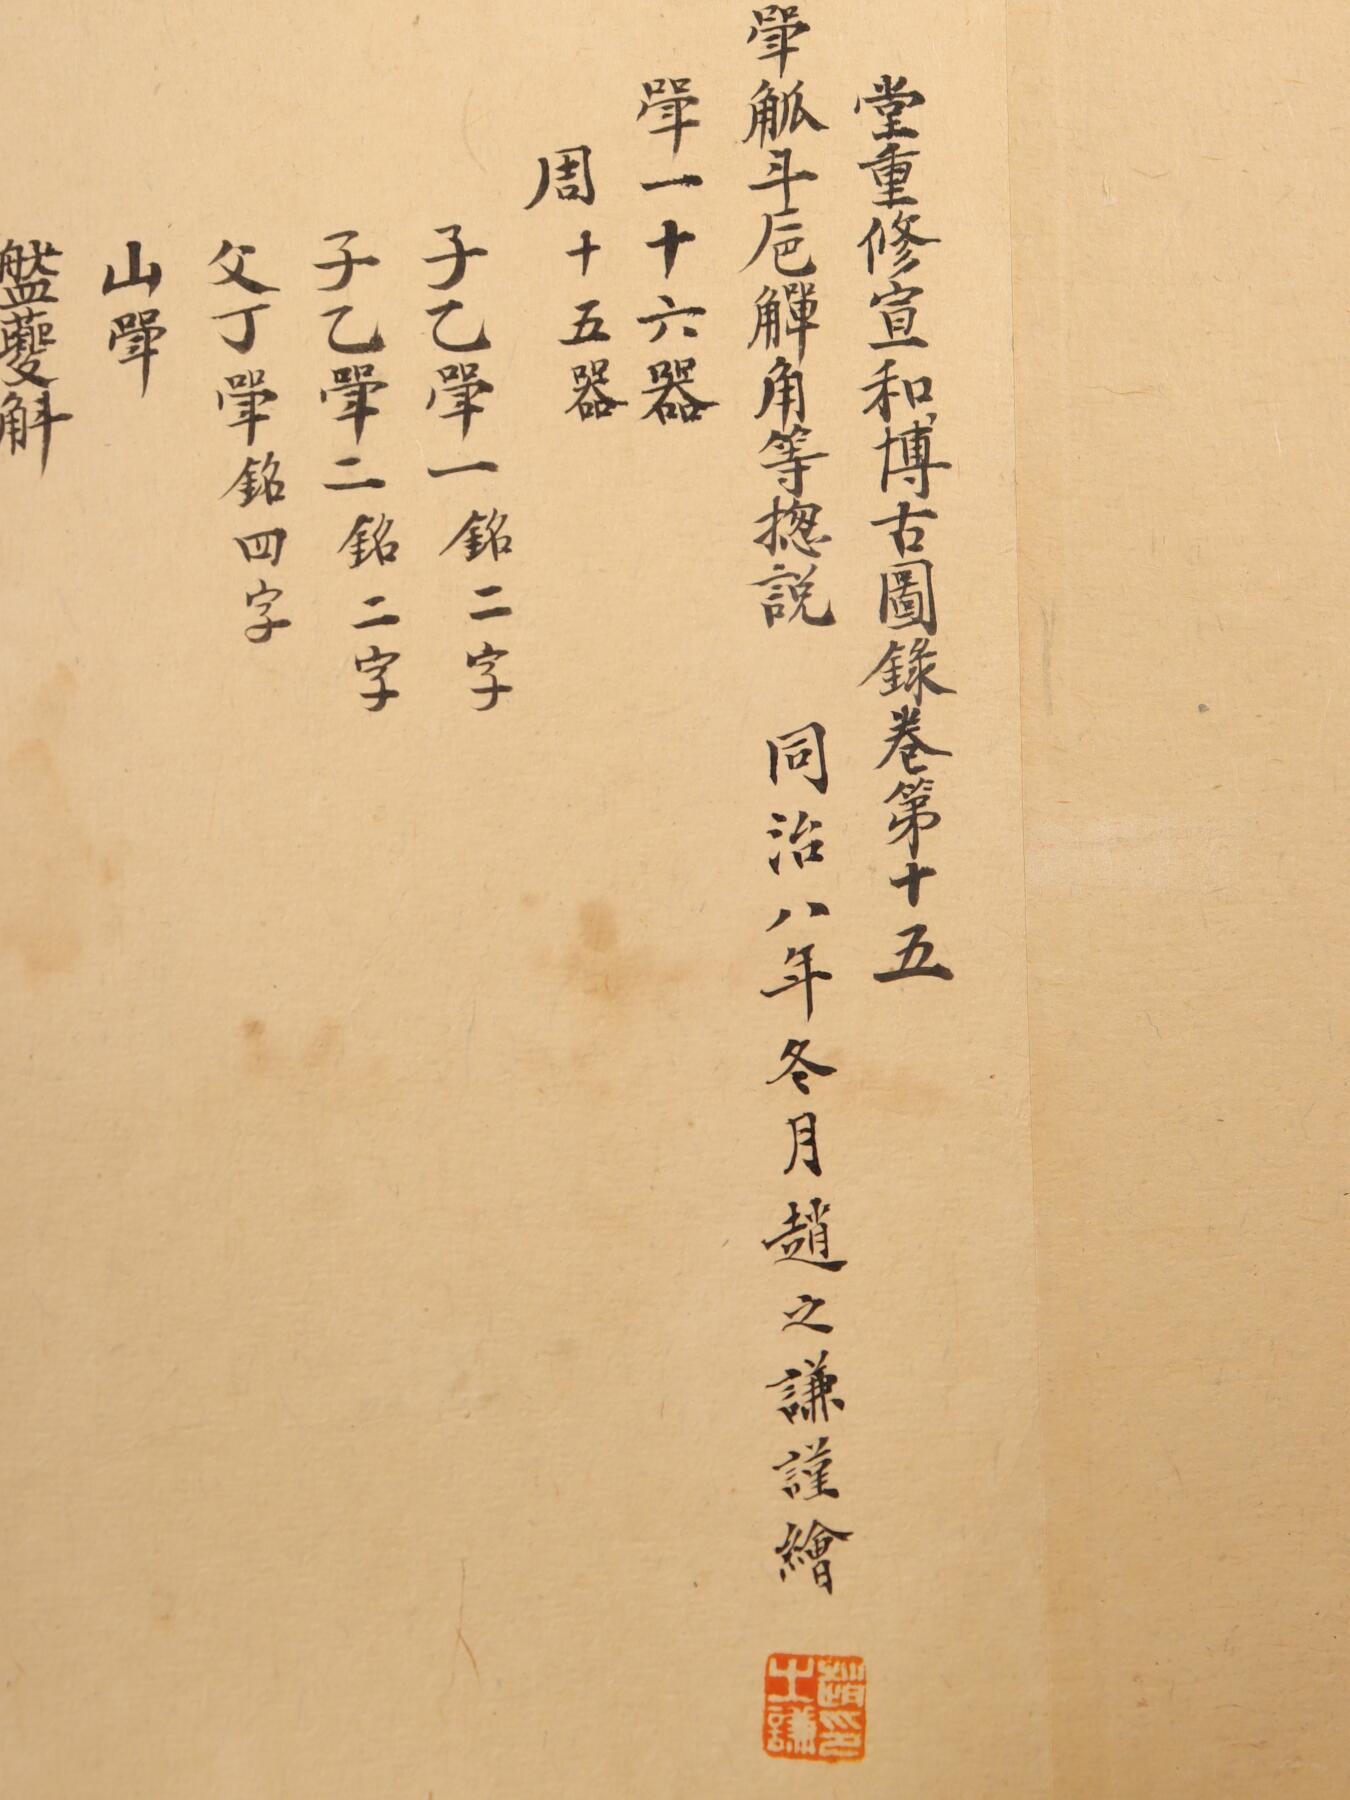 堂重修宣和博古圖錄卷第十五
斝觚斗巵觶角等揔説 同治八年冬月趙之謙謹繪
斝一十六器
周十五器
子乙斝一銘二字
子乙斝二銘二字
父丁斝銘四字
山斝
盤夔斝
趙之謙印